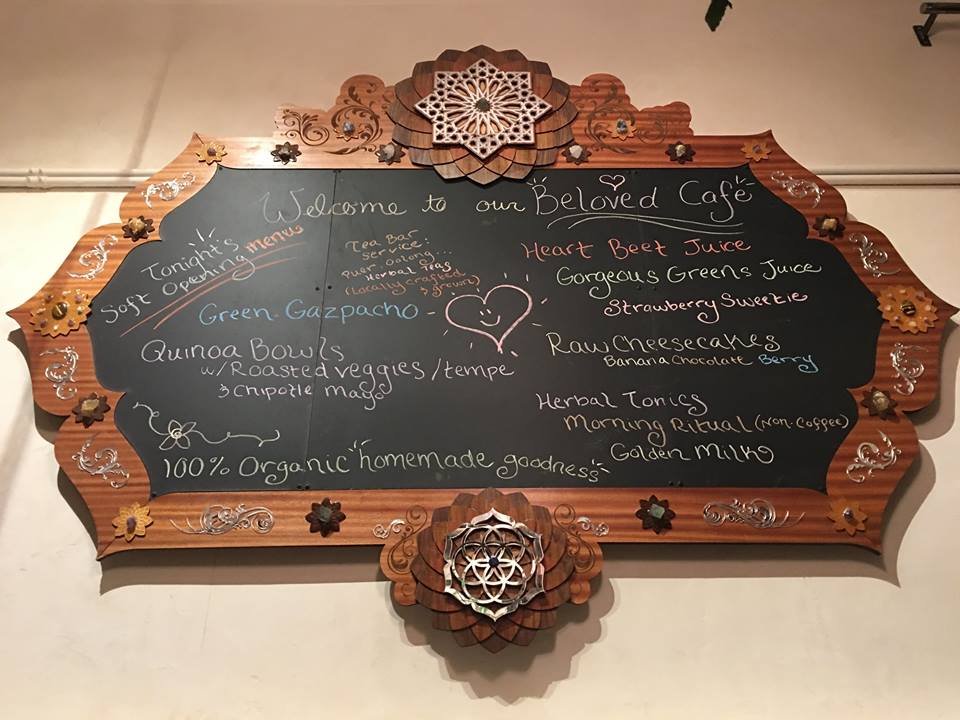 Welcome to our Beloved Café
Tonight's
Soft Opening menu
Tea Bar
Service:
Puer Oolong...
Herbal Teas
(locally crafted
& grown)
Green Gazpacho
Quinoa Bowls
w/ Roasted veggies / tempe
& Chipotle mayo
100% Organic homemade goodness
Heart Beet Juice
Gorgeous Greens Juice
Strawberry Sweetie
Raw Cheesecakes
Banana Chocolate Berry
Herbal Tonics
Morning Ritual (Non-Coffee)
Golden Milk